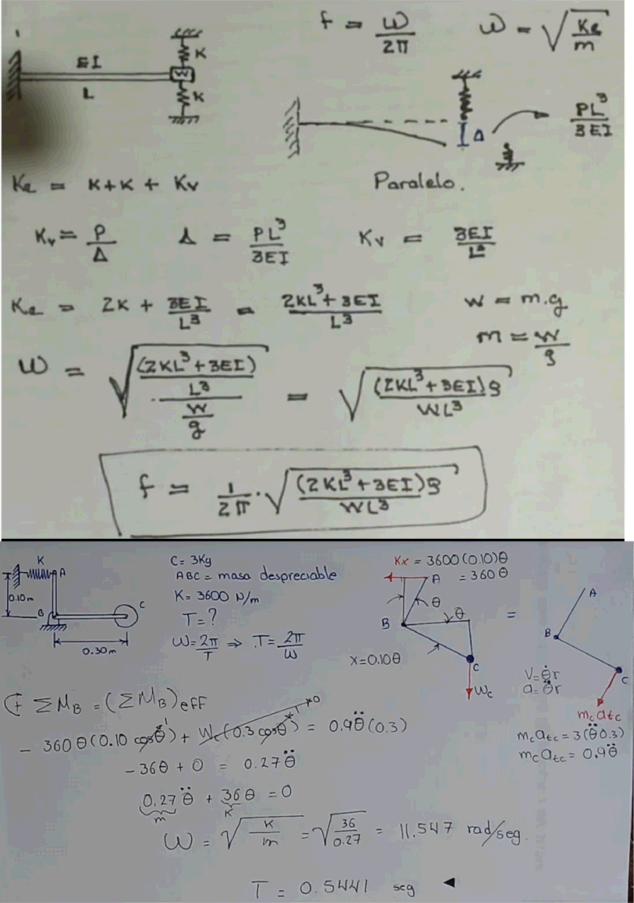 f = ω/2π ω = √(Ke/m)
EI
K
L
K
Δ
PL³/3EI
Ke = K+K + Kv Paralelo.
Kv = P/Δ Δ = PL³/3EI Kv = 3EI/L³
Ke = 2K + 3EI/L³ = (2KL³+3EI)/L³ w = m.g
m = w/g
ω = √(((2KL³+3EI)/L³)/(w/g)) = √((2KL³+3EI)g/WL³)
f = 1/2π · √((2KL³+3EI)g/WL³)
K
A
0.10m
B
C
0.30m
C = 3Kg
ABC = masa despreciable
K = 3600 N/m
T = ?
ω = 2π/T ⇒ .T = 2π/ω
Kx = 3600(0.10)θ
= 360θ
A
θ
θ
B
X=0.10θ
C
Wc
=
A
B
C
V=θ̇r
a=θ̈r
mcatc
mcatc = 3(θ̈0.3)
mcatc = 0.9θ̈
(+ ΣMB = (ΣMB)eff
- 360θ(0.10 cosθ)¹ + Wc(0.3 cosθ)¹ →0 = 0.9θ̈(0.3)
-36θ + 0 = 0.27θ̈
0.27θ̈ + 36θ = 0
m K
ω = √(K/m) = √(36/0.27) = 11.547 rad/seg.
T = 0.5441 seg ◄